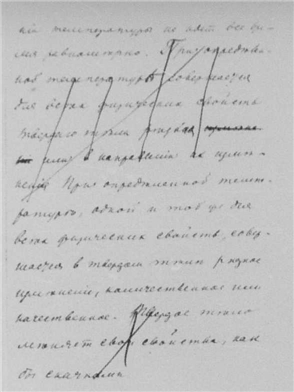 ній температуры не идет все вре-
мя равномерно. При определен-
ной температуре совершается
для всех физических свойств
твердого тела резкая
или в направленіи их измѣ-
неній При определенной темпе-
ратуре, одной и той же для
всех физических свойств, совер-
шается в твердом теле резкое
изменение, количественное или
качественное. Твердое тело
меняет свои свойства, как
бы скачками